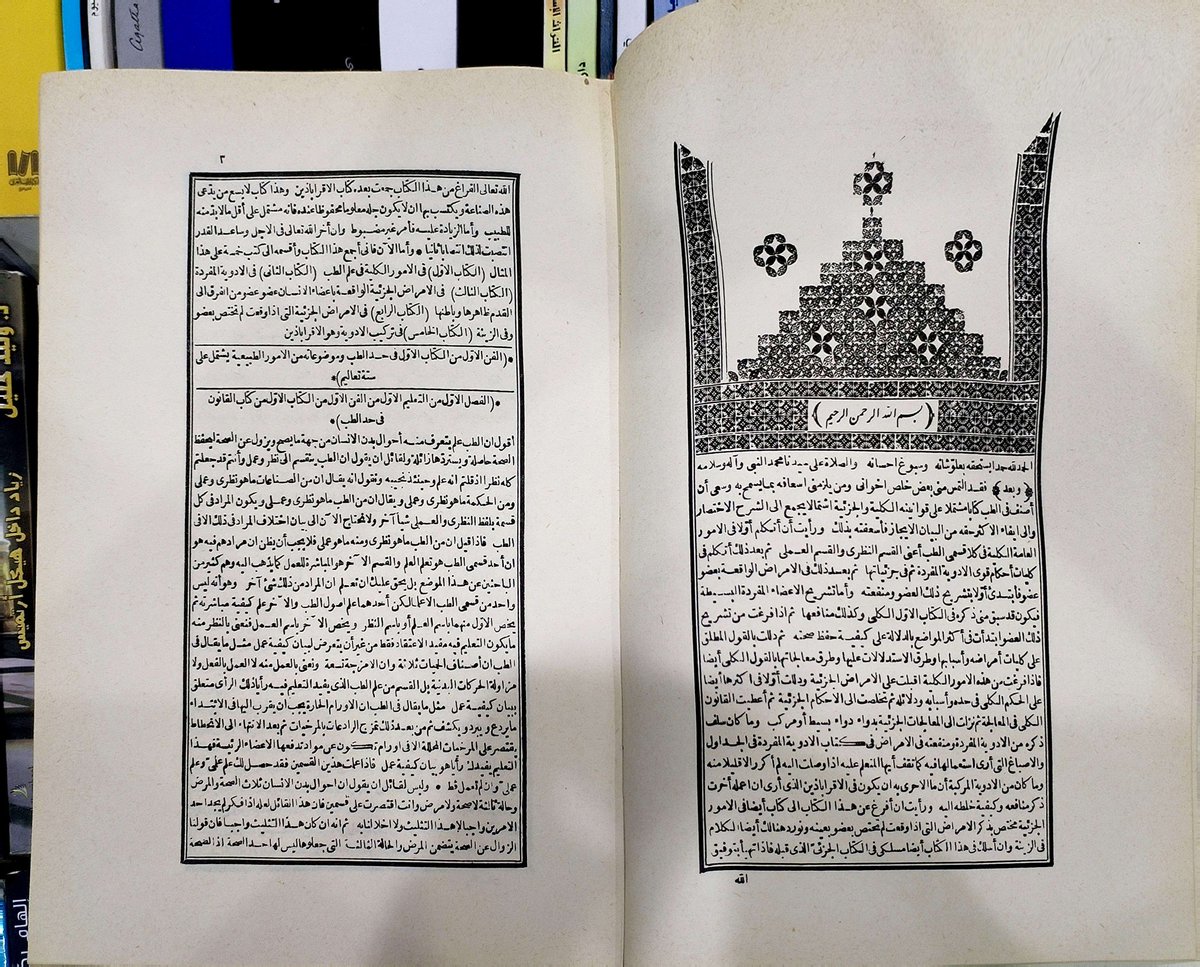 بسم الله الرحمن الرحيم
الحمد لله حمدا يستحقه بعلو شانه وسبوغ احسانه والصلاة على سيدنا محمد النبى وآله وسلامه
﴿وبعد﴾ فقد التمس منى بعض خلص اخوانى ومن يلزمنى اسعافه بما يسمح به وسعى أن
أصنف فى الطب كتابا مشتملا على قوانينه الكلية والجزئية اشتمالا يجمع الى الشرح الاختصار
والى ايفاء الاكثر حقه من البيان الايجاز فأسعفته بذلك ورأيت أن أتكلم أولا فى الامور
العامة الكلية فى كلا قسمى الطب أعنى القسم النظرى والقسم العملى ثم بعد ذلك أتكلم فى
كليات أحكام قوى الادوية المفردة ثم فى جزئياتها ثم بعد ذلك فى الامراض الواقعة بعضو
عضو فأبتدئ أولا بتشريح ذلك العضو ومنفعته وأما تشريح الاعضاء المفردة البسيطة
فيكون قد سبق منى ذكره فى الكتاب الاول الكلى وكذلك منافعها ثم اذا فرغت من تشريح
ذلك العضو ابتدأت فى أكثر المواضع بالدلالة على كيفية حفظ صحته ثم دللت بالقول المطلق
على كليات أمراضه وأسبابها وطرق الاستدلالات عليها وطرق معالجاتها بالقول الكلى أيضا
فاذا فرغت من هذه الامور الكلية اقبلت على الامراض الجزئية ودللت أولا فى اكثرها أيضا
على الحكم الكلى فى حده وأسبابه ودلائله ثم تخلصت الى الاحكام الجزئية ثم أعطيت القانون
الكلى فى المعالجة ثم نزلت الى المعالجات الجزئية بدواء دواء بسيط أو مركب وما كان سلف
ذكره من الادوية المفردة ومنفعته فى الامراض فى كتاب الادوية المفردة فى الجداول
والاصباغ التى أرى استعمالها فيه كما تقف أيها المتعلم عليه اذا وصلت اليه لم أكرر الا قليلا منه
وما كان من الادوية المركبة أن ما الاحرى به ان يكون فى الاقراباذين الذى أرى ان اعمله أخرت
ذكر منافعه وكيفية خلطه اليه ورأيت أن أفرغ عن هذا الكتاب الى كتاب أيضا فى الامور
الجزئية مختص بذكر الامراض التى اذا وقعت لم تختص بعضو بعينه ونورد هنالك أيضا الكلام
فى الزينة وان أسلك فى هذا الكتاب أيضا مسلكى فى الكتاب الجزئى الذى قبله فاذا تم بأ توفيق
الله
٢
الله تعالى الفراغ من هذا الكتاب جمعت بعده كتاب الاقراباذين وهذا كتاب لا يسع من يدعى
هذه الصناعة ويكتسب بها ان لا يكون جله معلوما محفوظا عنده فانه مشتمل على أقل ما لا بد منه
للطبيب وأما الزيادة عليه فأمر غير مضبوط وان أخر الله تعالى فى الاجل وساعد القدر
انتصبت لذلك انتصابا ثانيا • وأما الآن فانى أجمع هذا الكتاب وأقسمه الى كتب خمسة على هذا
المثال (الكتاب الاول) فى الامور الكلية فى علم الطب (الكتاب الثانى) فى الادوية المفردة
(الكتاب الثالث) فى الامراض الجزئية الواقعة باعضاء الانسان عضو عضو من الفرق الى
القدم ظاهرها وباطنها (الكتاب الرابع) فى الامراض الجزئية التى اذا وقعت لم تختص بعضو
وفى الزينة (الكتاب الخامس) فى تركيب الادوية وهو الاقراباذين
•(الفن الاول من الكتاب الاول فى حد الطب وموضوعاته من الامور الطبيعية يشتمل على
ستة تعاليم)•
•(الفصل الاول من التعليم الاول من الفن الاول من الكتاب الاول من كتاب القانون
فى حد الطب)•
أقول ان الطب علم يتعرف منه أحوال بدن الانسان من جهة ما يصح ويزول عن الصحة ليحفظ
الصحة حاصلة ويستردها زائلة ولقائل أن يقول ان الطب ينقسم الى نظر وعمل وأنتم قد جعلتم
كله نظرا اذ قلتم انه علم وحينئذ نجيبه ونقول انه يقال ان من الصناعات ما هو نظرى وعملى
ومن الحكمة ما هو نظرى وعملى ويقال ان من الطب ما هو نظرى وعملى ويكون المراد فى كل
قسمة بلفظ النظرى والعملى شيأ آخر ولا نحتاج الآن الى بيان اختلاف المراد فى ذلك الا فى
الطب فاذا قيل ان من الطب ما هو نظرى ومنه ما هو عملى فلا يجب أن يظن ان مرادهم فيه هو
ان أحد قسمى الطب هو تعلم العلم والقسم الآخر هو المباشرة للعمل كما يذهب اليه وهم كثير من
الباحثين عن هذا الموضع بل يحق عليك ان تعلم ان المراد من ذلك شئ آخر وهو أنه ليس
واحد من قسمى الطب الا علما لكن أحدهما علم اصول الطب والآخر علم كيفية مباشرته ثم
يخص الاول منهما باسم العلم أو باسم النظر ويخص الآخر باسم العمل فنعنى بالنظر منه
ما يكون التعليم فيه مفيد الاعتقاد فقط من غير أن يتعرض لبيان كيفية عمل مثل ما يقال فى
الطب ان أصناف الحميات ثلاثة وان الامزجة تسعة ونعنى بالعمل منه لا العمل بالفعل ولا
مزاولة الحركات البدنية بل القسم من علم الطب الذى يفيد التعليم فيه رأيا ذلك الرأى متعلق
ببيان كيفية عمل مثل ما يقال فى الطب ان الاورام الحارة يجب ان يقرب اليها فى الابتداء
ما يردع ويبرد ويكشف ثم من بعد ذلك تمزج الرادعات بالمرخيات ثم بعد الانتهاء الى الانحطاط
يقتصر على المرخيات المحللة الا فى اورام تكون عن مواد تدفعها الاعضاء الرئيسة فهذا
التعليم يفيدك رأيا هو بيان كيفية عمل فاذا علمت هذين القسمين فقد حصل لك علم علمى وعلم
عملى وان لم تعمل قط • وليس لقائل ان يقول ان احوال بدن الانسان ثلاث الصحة والمرض
وحالة ثالثة لا صحة ولا مرض وانت اقتصرت على قسمين فان هذا القائل لعله اذا فكر لم يجد احد
الامرين واجبا لا هذا التثليث ولا اخلالنا به ثم انه ان كان هذا التثليث واجبا فان قولنا
الزوال عن الصحة يتضمن المرض والحالة الثالثة التى جعلوها ليس لها حد الصحة اذ الصحة
زياد داخل هيكل أرتميس
Agatha
دار